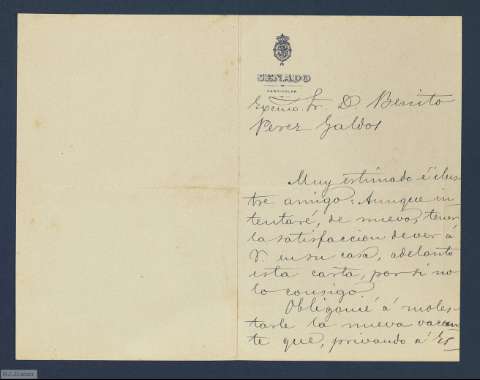 SENADO
PARTICULAR
Excmo. Sr. D. Benito
Perez Galdos
Muy estimado é ilus
tre amigo: Aunque in
tentaré, de nuevo, tener
la satisfaccion de ver á
V. en su casa, adelanto
esta carta, por si no
lo consigo.
Obligame á moles
tarle la nueva vacan
te que, privando á